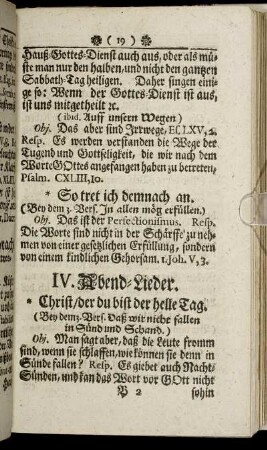 ( 19 )
Hauß-Gottes-Dienst auch aus, oder als mü-
ste man nur den halben, und nicht den gantzen
Sabbath-Tag heiligen. Daher singen eini-
ge so: Wenn der Gottes-Dienst ist aus,
ist uns mitgetheilt ꝛc.
(ibid. Auff unsern Wegen)
Obj. Das aber sind Irrwege, Es. LXV, 2.
Resp. Es werden verstanden die Wege der
Tugend und Gottseligkeit, die wir nach dem
Worte GOttes angefangen haben zu betreten,
Psalm. CXLIII, 10.
* So tret ich demnach an.
(Bey dem 3. Vers. In allen mög erfüllen.)
Obj. Das ist der Perfectionismus. Resp.
Die Worte sind nicht in der Schärffe zu neh-
men von einer gesetzlichen Erfüllung, sondern
von einem kindlichen Gehorsam. 1. Joh. V, 3.
IV. Abend-Lieder.
* Christ/ der du bist der helle Tag.
(Bey dem 3. Vers. Daß wir nicht fallen
in Sünd und Schand.)
Obj. Man sagt aber, daß die Leute fromm
sind, wenn sie schlaffen, wie können sie denn in
Sünde fallen? Resp. Es giebet auch Nacht-
Sünden, und kan das Wort vor GOtt nicht
B 2 sohin